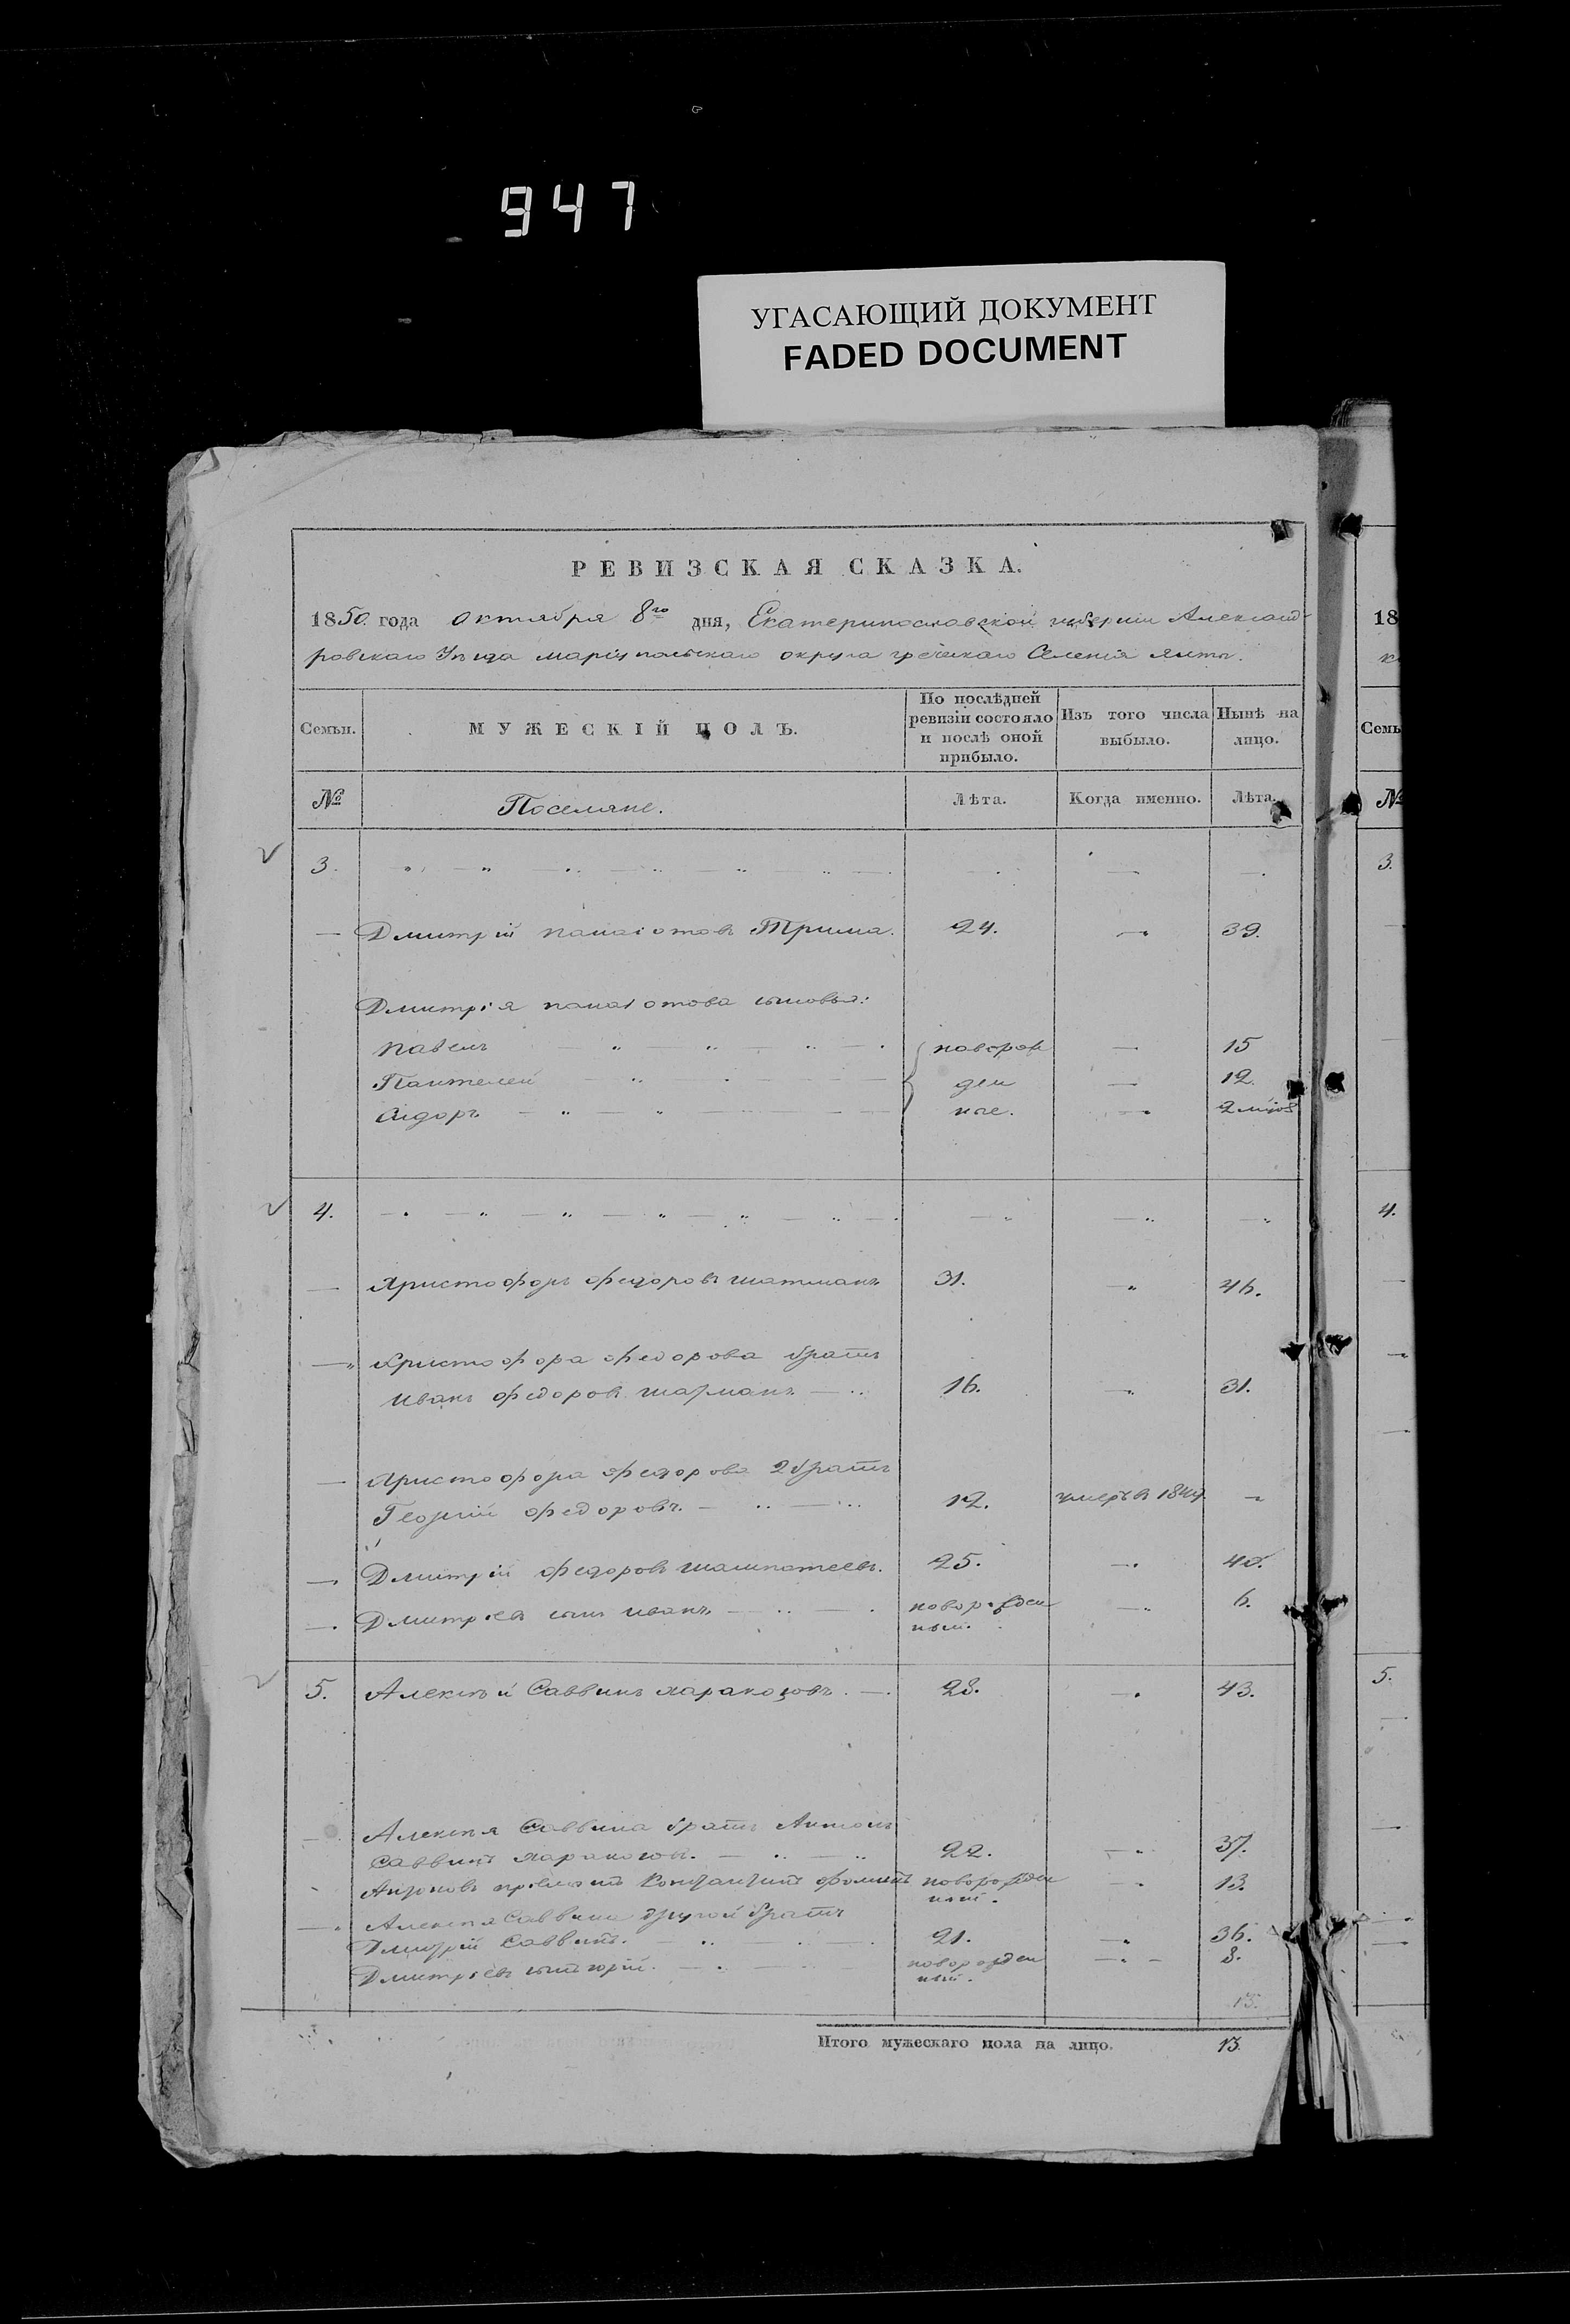 947
УГАСАЮЩИЙ ДОКУМЕНТ
FADED DOCUMENT
РЕВИЗСКАЯ СКАЗКА.
1850. года октября 8го дня, Екатеринославской губерніи Александ-
ровскаго Уѣзда маріупольскаго округа греческаго Селенія Ялты.
Семьи. МУЖЕСКІЙ ПОЛЪ. По послѣдней ревизіи состояло и послѣ оной прибыло. Изъ того числа выбыло. Нынѣ на лицо.
№ Поселяне. Лѣта. Когда именно. Лѣта.
3.
Дмитрій панаіотовъ 24. 39.
Дмитрія панаіотова сыновья:
павелъ новорож 15
Пантелей ден 12.
Сидоръ ные. 2 м
4.
Христофоръ федоровъ шатманъ 31. 46.
Христофора федорова братъ
иванъ федоровъ шатманъ 16. 31.
Христофора федорова 2 братъ
Георгій федоровъ. 12. умеръ в 184
Дмитрій федоровъ 25. 40.
Дмитріевъ сынъ иванъ новорожден 6.
ный.
5. Алексѣй Саввинъ харакозовъ. 28. 43.
Алексѣя Саввина братъ Антонъ
Саввинъ харакозовъ. 22. 37.
Антоновъ Константинъ новорожден 13.
ный.
Алексѣя Саввина другой братъ
Дмитрій Саввинъ. 21. 36.
Дмитріевъ сынъ юрій. новорожден 8.
ный.
13.
Итого мужескаго пола на лицо. 13.
18
Семь
№
3.
4.
5.